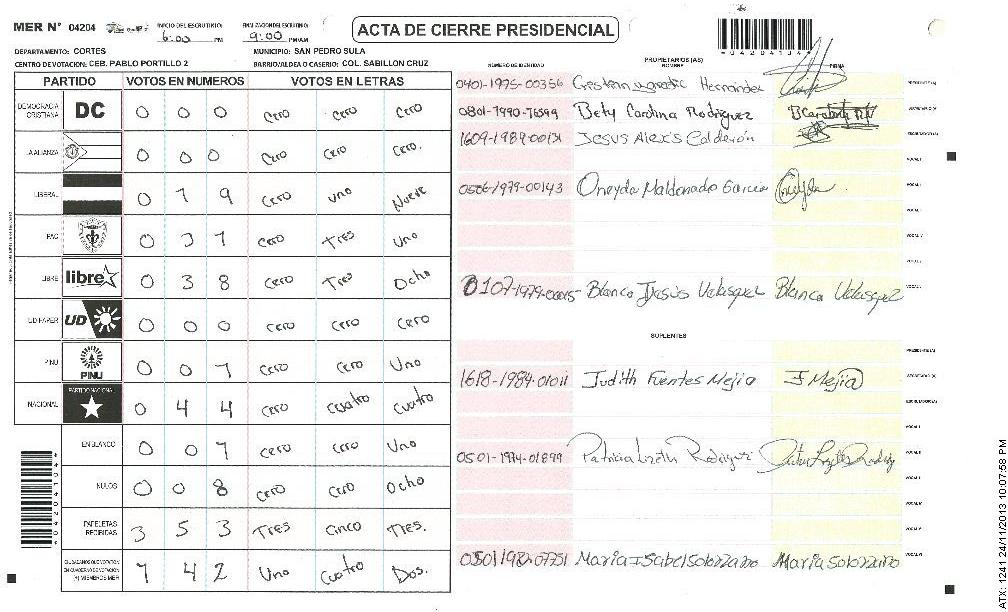 MER N° 04204 INICIO DEL ESCRUTINIO: 6:00 PM FINALIZACION DEL ESCRUTINIO: 9:00 PM/AM
ACTA DE CIERRE PRESIDENCIAL
DEPARTAMENTO: CORTES MUNICIPIO: SAN PEDRO SULA
CENTRO DE VOTACION: CEB. PABLO PORTILLO 2 BARRIO/ALDEA O CASERIO: COL. SABILLON CRUZ
PARTIDO VOTOS EN NUMEROS VOTOS EN LETRAS
DEMOCRACIA CRISTIANA DC 0 0 0 Cero Cero Cero
LA ALIANZA 0 0 0 Cero Cero Cero.
LIBERAL 0 1 9 Cero Uno Nueve
PAC 0 3 1 Cero Tres Uno
LIBRE libre 0 3 8 Cero Tres Ocho
UD FAPER UD 0 0 0 Cero Cero Cero
PINU PINU 0 0 1 Cero Cero Uno
NACIONAL PARTIDO NACIONAL 0 4 4 Cero Cuatro Cuatro
EN BLANCO 0 0 1 Cero Cero Uno
NULOS 0 0 8 Cero Cero Ocho
PAPELETAS RECIBIDAS 3 5 3 Tres Cinco Tres.
CIUDADANOS QUE VOTARON EN CUADERNO DE VOTACION (+) MIEMBROS MER 1 4 2 Uno Cuatro Dos.
*042041341*
PROPIETARIOS (AS)
NUMERO DE IDENTIDAD NOMBRE FIRMA
0401-1975-00356 Hernandez PRESIDENTE (A)
0801-1990-76599 Bety Carolina Rodriguez SECRETARIO (A)
1609-1989-00131 Jesus Alexis Calderón ESCRUTADOR (A)
VOCAL I
0506-1979-00143 Oneyda Maldonado Garcia Oneyda
0107-1979-00015 Blanca Jesús Velasquez Blanca Velasquez
SUPLENTES
PRESIDENTE (A)
1618-1984-01011 Judith Fuentes Mejia J Mejia SECRETARIO (A)
ESCRUTADOR (A)
0501-1974-01899 Patricia Lizeth Rodriguez
Maria Isabel Solorzano Maria Solorzano
ATX: 1241 24/11/2013 10:07:58 PM